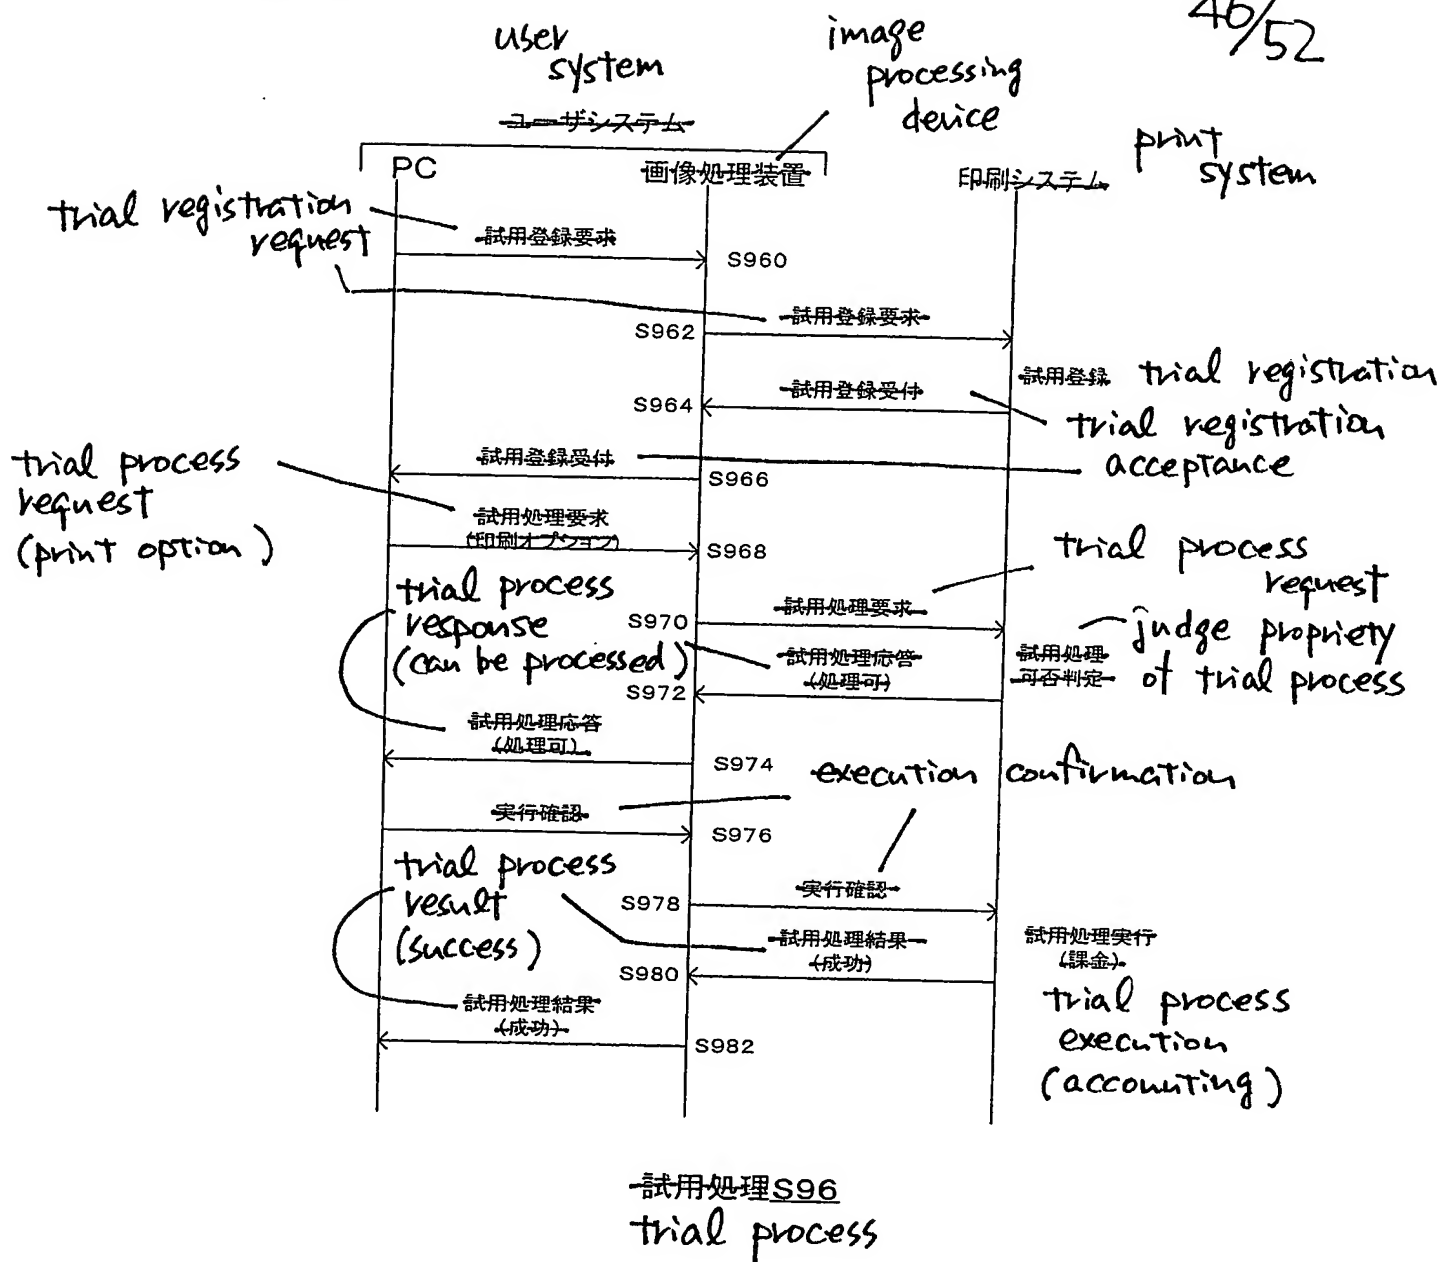 46/52
user
system
image
processing
device
ユーザシステム
print
system
PC
画像処理装置
印刷システム
trial registration
request
試用登録要求
S960
試用登録要求
S962
試用登録 trial registration
試用登録受付
S964
trial registration
acceptance
試用登録受付
S966
trial process
request
(print option)
試用処理要求
(印刷オプション)
S968
trial process
request
試用処理要求
S970
trial process
response
(can be processed)
judge propriety
of trial process
試用処理
可否判定
試用処理応答
(処理可)
S972
試用処理応答
(処理可)
S974
execution confirmation
実行確認
S976
実行確認
S978
trial process
result
(success)
試用処理結果
(成功)
S980
試用処理実行
(課金)
trial process
execution
(accounting)
試用処理結果
(成功)
S982
試用処理S96
trial process